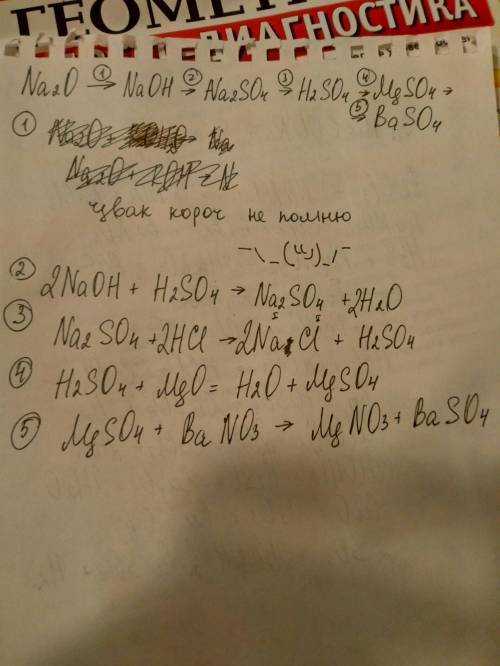 ГЕОМЕТ
ДИАГНОСТИКА
Na2O ①→ NaOH ②→ Na2SO4 ③→ H2SO4 ④→ MgSO4 →
⑤→ BaSO4
①
короч не помню
¯\_(ツ)_/¯
② 2NaOH + H2SO4 → Na2SO4 + 2H2O
③ Na2SO4 + 2HCl → 2NaCl + H2SO4
④ H2SO4 + MgO = H2O + MgSO4
⑤ MgSO4 + BaNO3 → MgNO3 + BaSO4